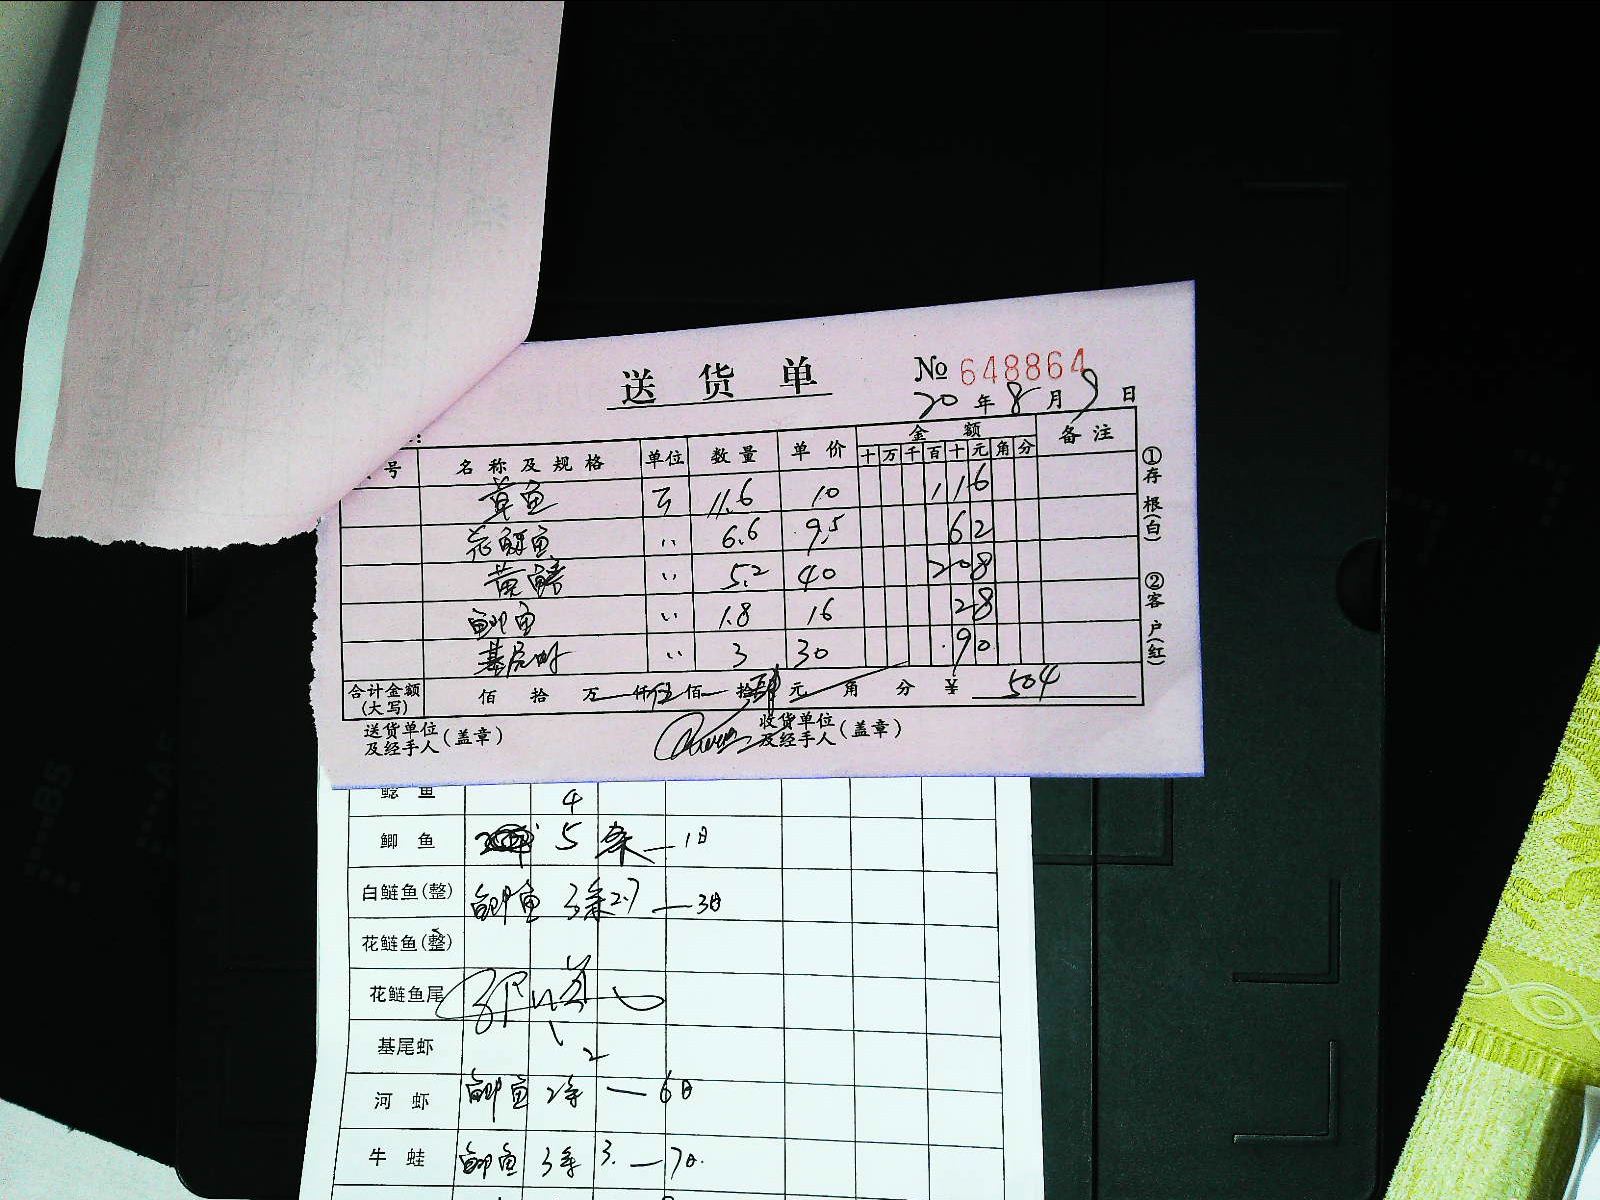 送货单
No 648864
20年8月9日
号 名称及规格 单位 数量 单价 金额 备注
十 万 千 百 十 元 角 分
草鱼 斤 11.6 10 116
花鲢鱼 〃 6.6 9.5 62
黄鳝 〃 5.2 40 208
鲫鱼 〃 1.8 16 28
基尾虾 〃 3 30 90
合计金额(大写) 佰 拾 万 仟 伍 佰 拾 肆 元 角 分 ¥ 504
送货单位及经手人(盖章) 收货单位及经手人(盖章)
①存根(白) ②客户(红)
鲶鱼 4
鲫鱼 5条—1日
白鲢鱼(整) 鲫鱼 3条2.7—3日
花鲢鱼(整)
花鲢鱼尾
基尾虾 2
河虾 鲫鱼 2条—6日
牛蛙 鲫鱼 3条 3.—7日.